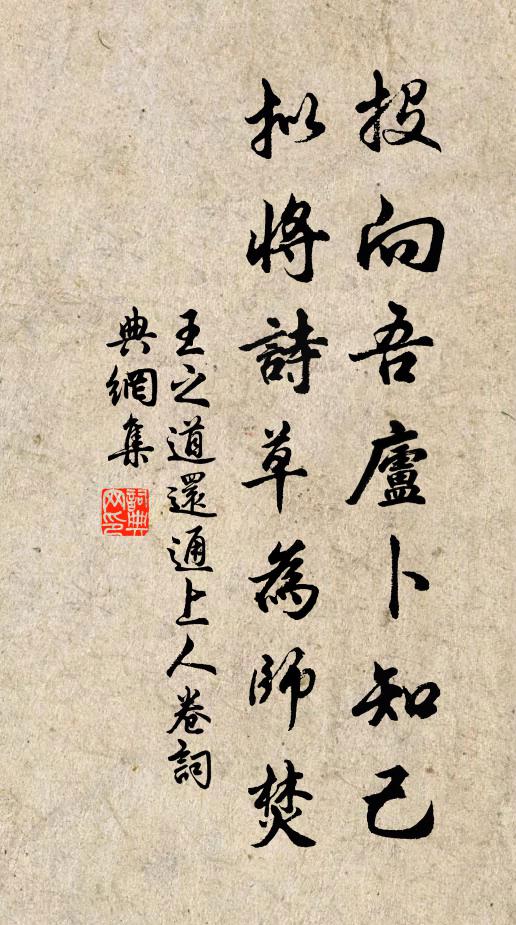 投向吾廬卜知己
拟將詩草為師焚
王之道還通上人卷詞
典網集
詞典網印